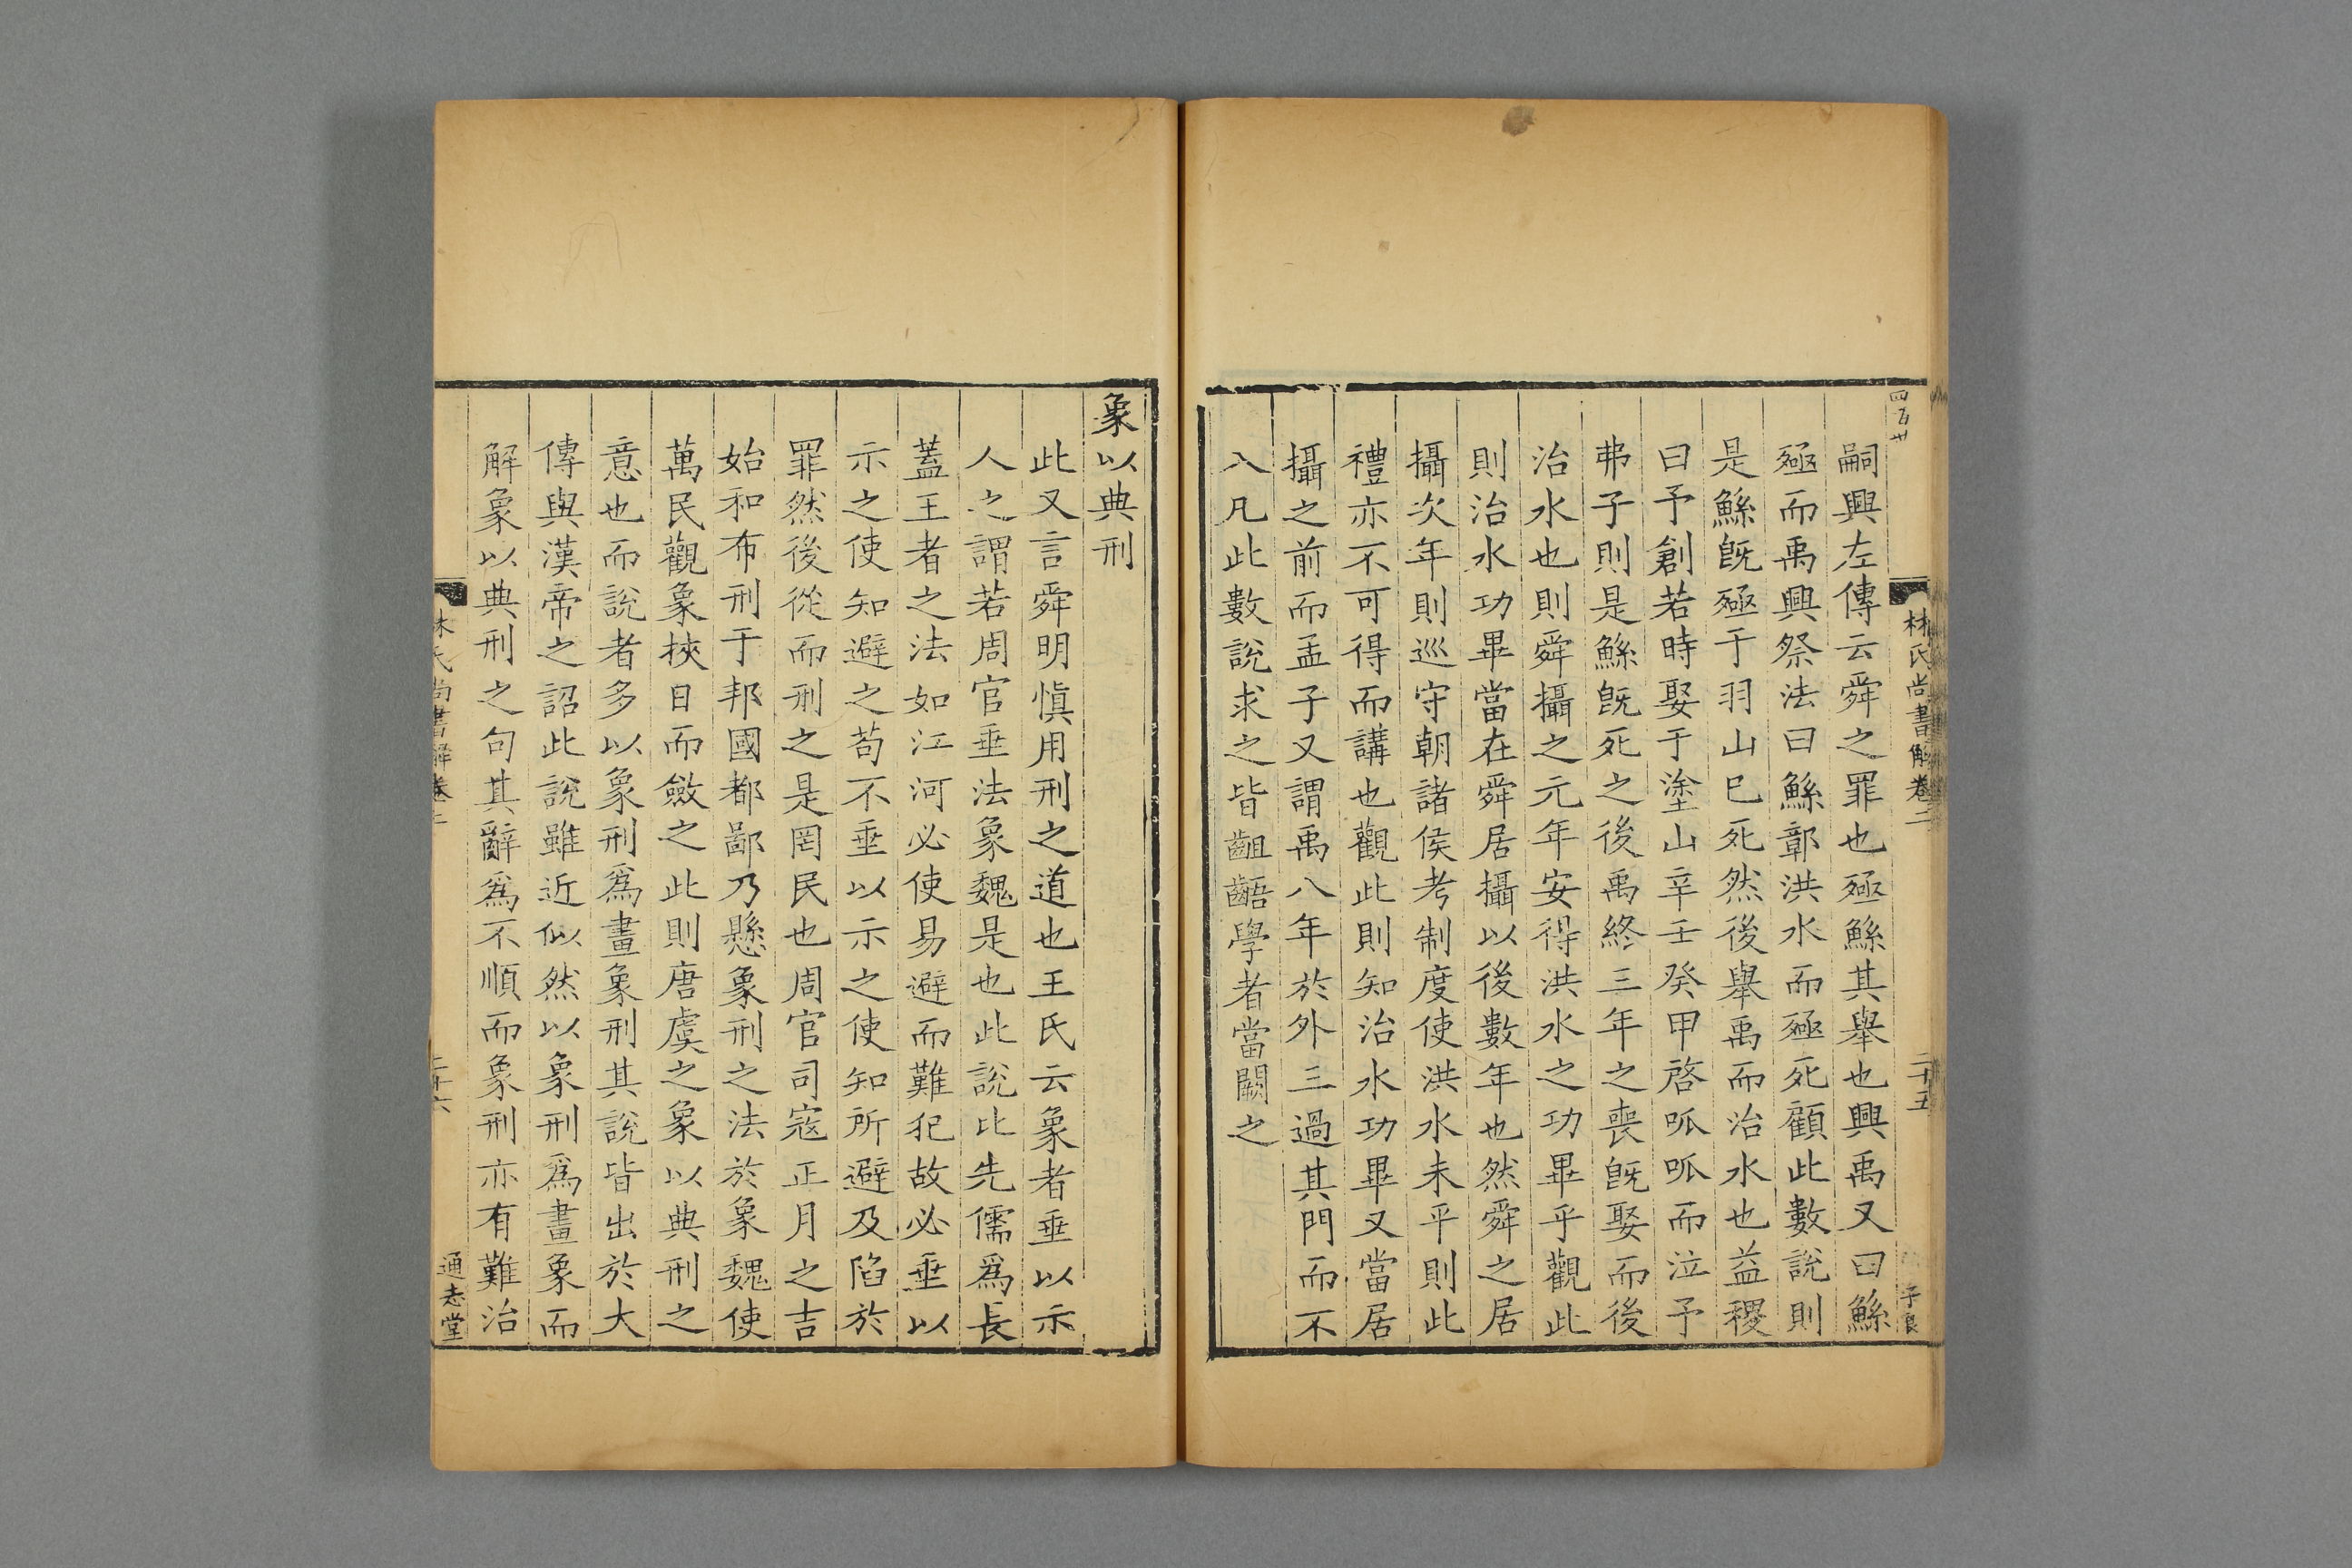 四百廿
林氏尚書解卷二
二十五
子良
嗣興左傳云舜之罪也殛鯀其舉也興禹又曰鯀
殛而禹興祭法曰鯀鄣洪水而殛死顧此數說則
是鯀旣殛于羽山巳死然後舉禹而治水也益稷
曰予創若時娶于塗山辛壬癸甲啓呱呱而泣予
弗子則是鯀旣死之後禹終三年之喪旣娶而後
治水也則舜攝之元年安得洪水之功畢乎觀此
則治水功畢當在舜居攝以後數年也然舜之居
攝次年則巡守朝諸侯考制度使洪水未平則此
禮亦不可得而講也觀此則知治水功畢又當居
攝之前而孟子又謂禹八年於外三過其門而不
入凡此數說求之皆齟齬學者當闕之
象以典刑
此又言舜明愼用刑之道也王氏云象者垂以示
人之謂若周官垂法象魏是也此說比先儒爲長
蓋王者之法如江河必使易避而難犯故必垂以
示之使知避之苟不垂以示之使知所避及陷於
罪然後從而刑之是罔民也周官司寇正月之吉
始和布刑于邦國都鄙乃懸象刑之法於象魏使
萬民觀象挾日而斂之此則唐虞之象以典刑之
意也而說者多以象刑爲畫象刑其說皆出於大
傳與漢帝之詔此說雖近似然以象刑爲畫象而
解象以典刑之句其辭爲不順而象刑亦有難治
林氏尚書解卷二
二十六
通志堂